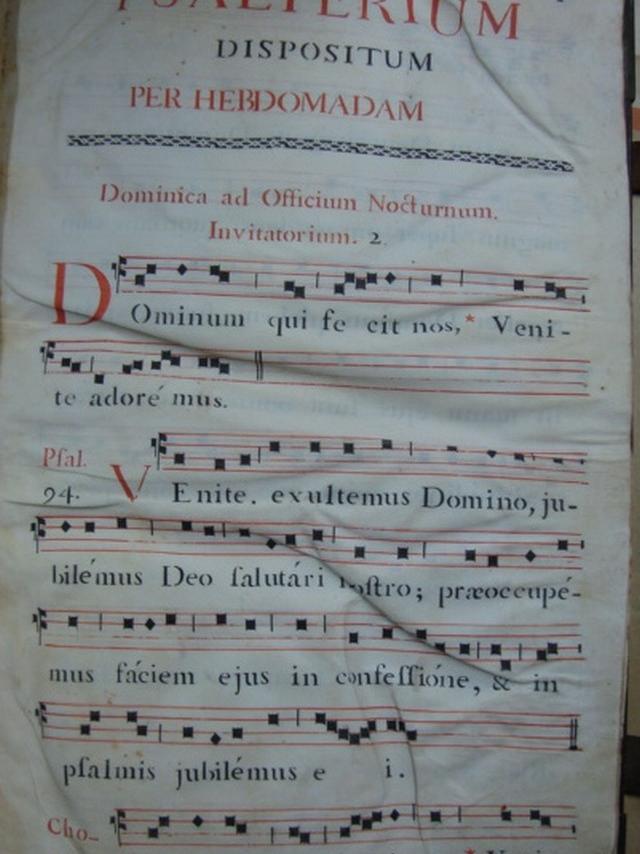 PSALTERIUM
DISPOSITUM
PER HEBDOMADAM
Dominica ad Officium Nocturnum.
Invitatorium. 2.
DOminum qui fe cit nos,* Veni-
te adoré mus.
Pſal. 94. VEnite. exultemus Domino, ju-
bilémus Deo ſalutári noſtro; præoccupé-
mus fáciem ejus in confeſſióne, & in
pſalmis jubilémus e i.
Cho-